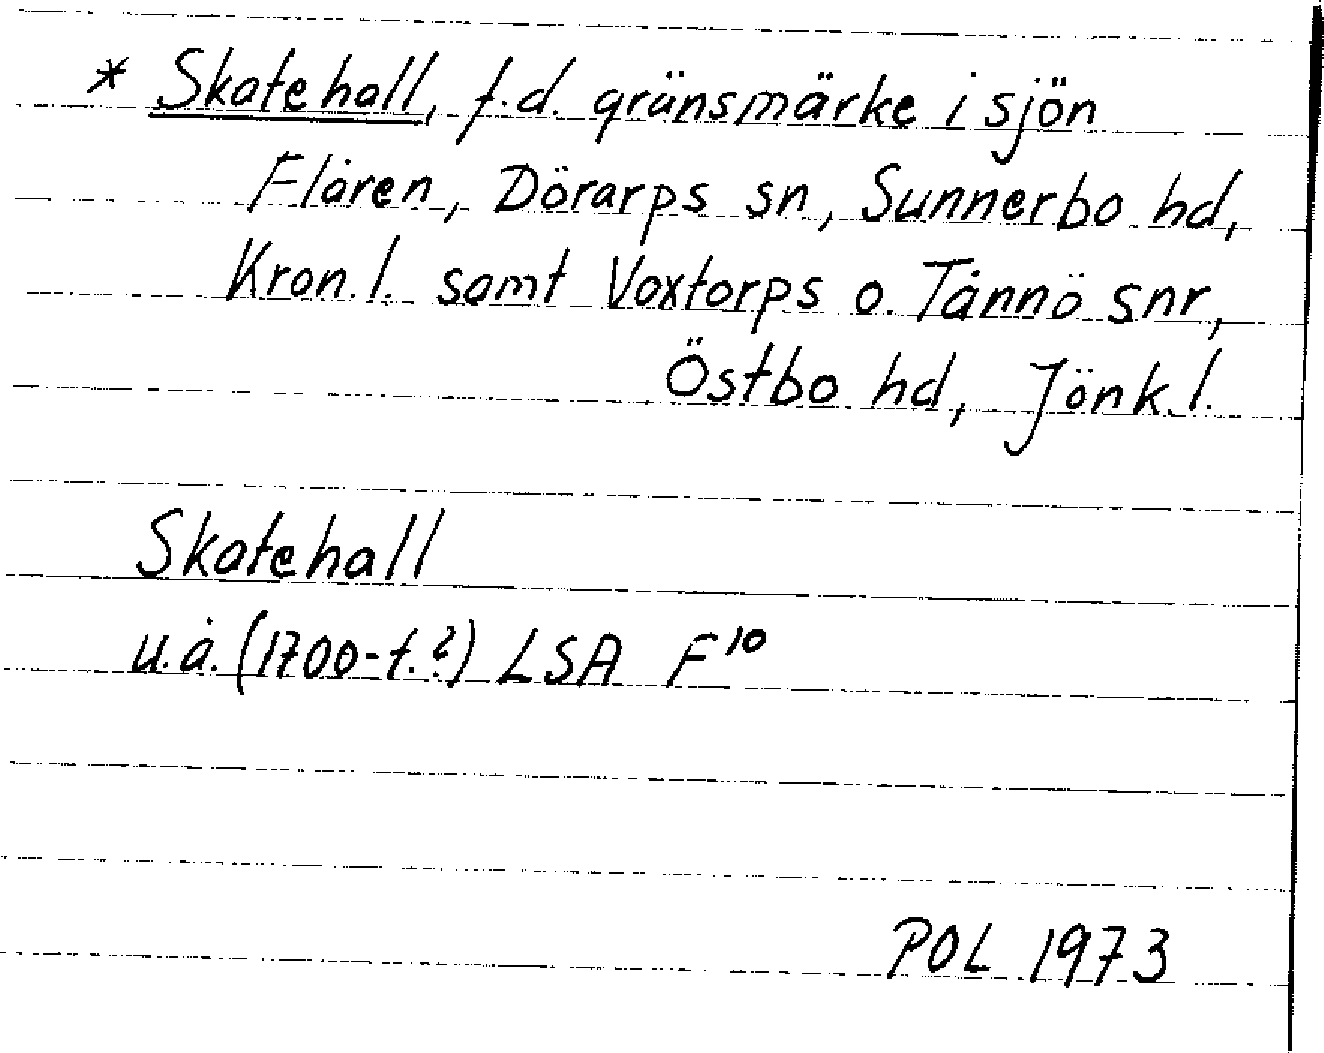 * Skatehall, f.d. gränsmärke i sjön
Flåren, Dörarps sn, Sunnerbo hd,
Kron.l. samt Voxtorps o. Tånnö snr,
Östbo hd, Jönk.l.
Skatehall
u.å. (1700-t.?) LSA F¹⁰
POL 1973